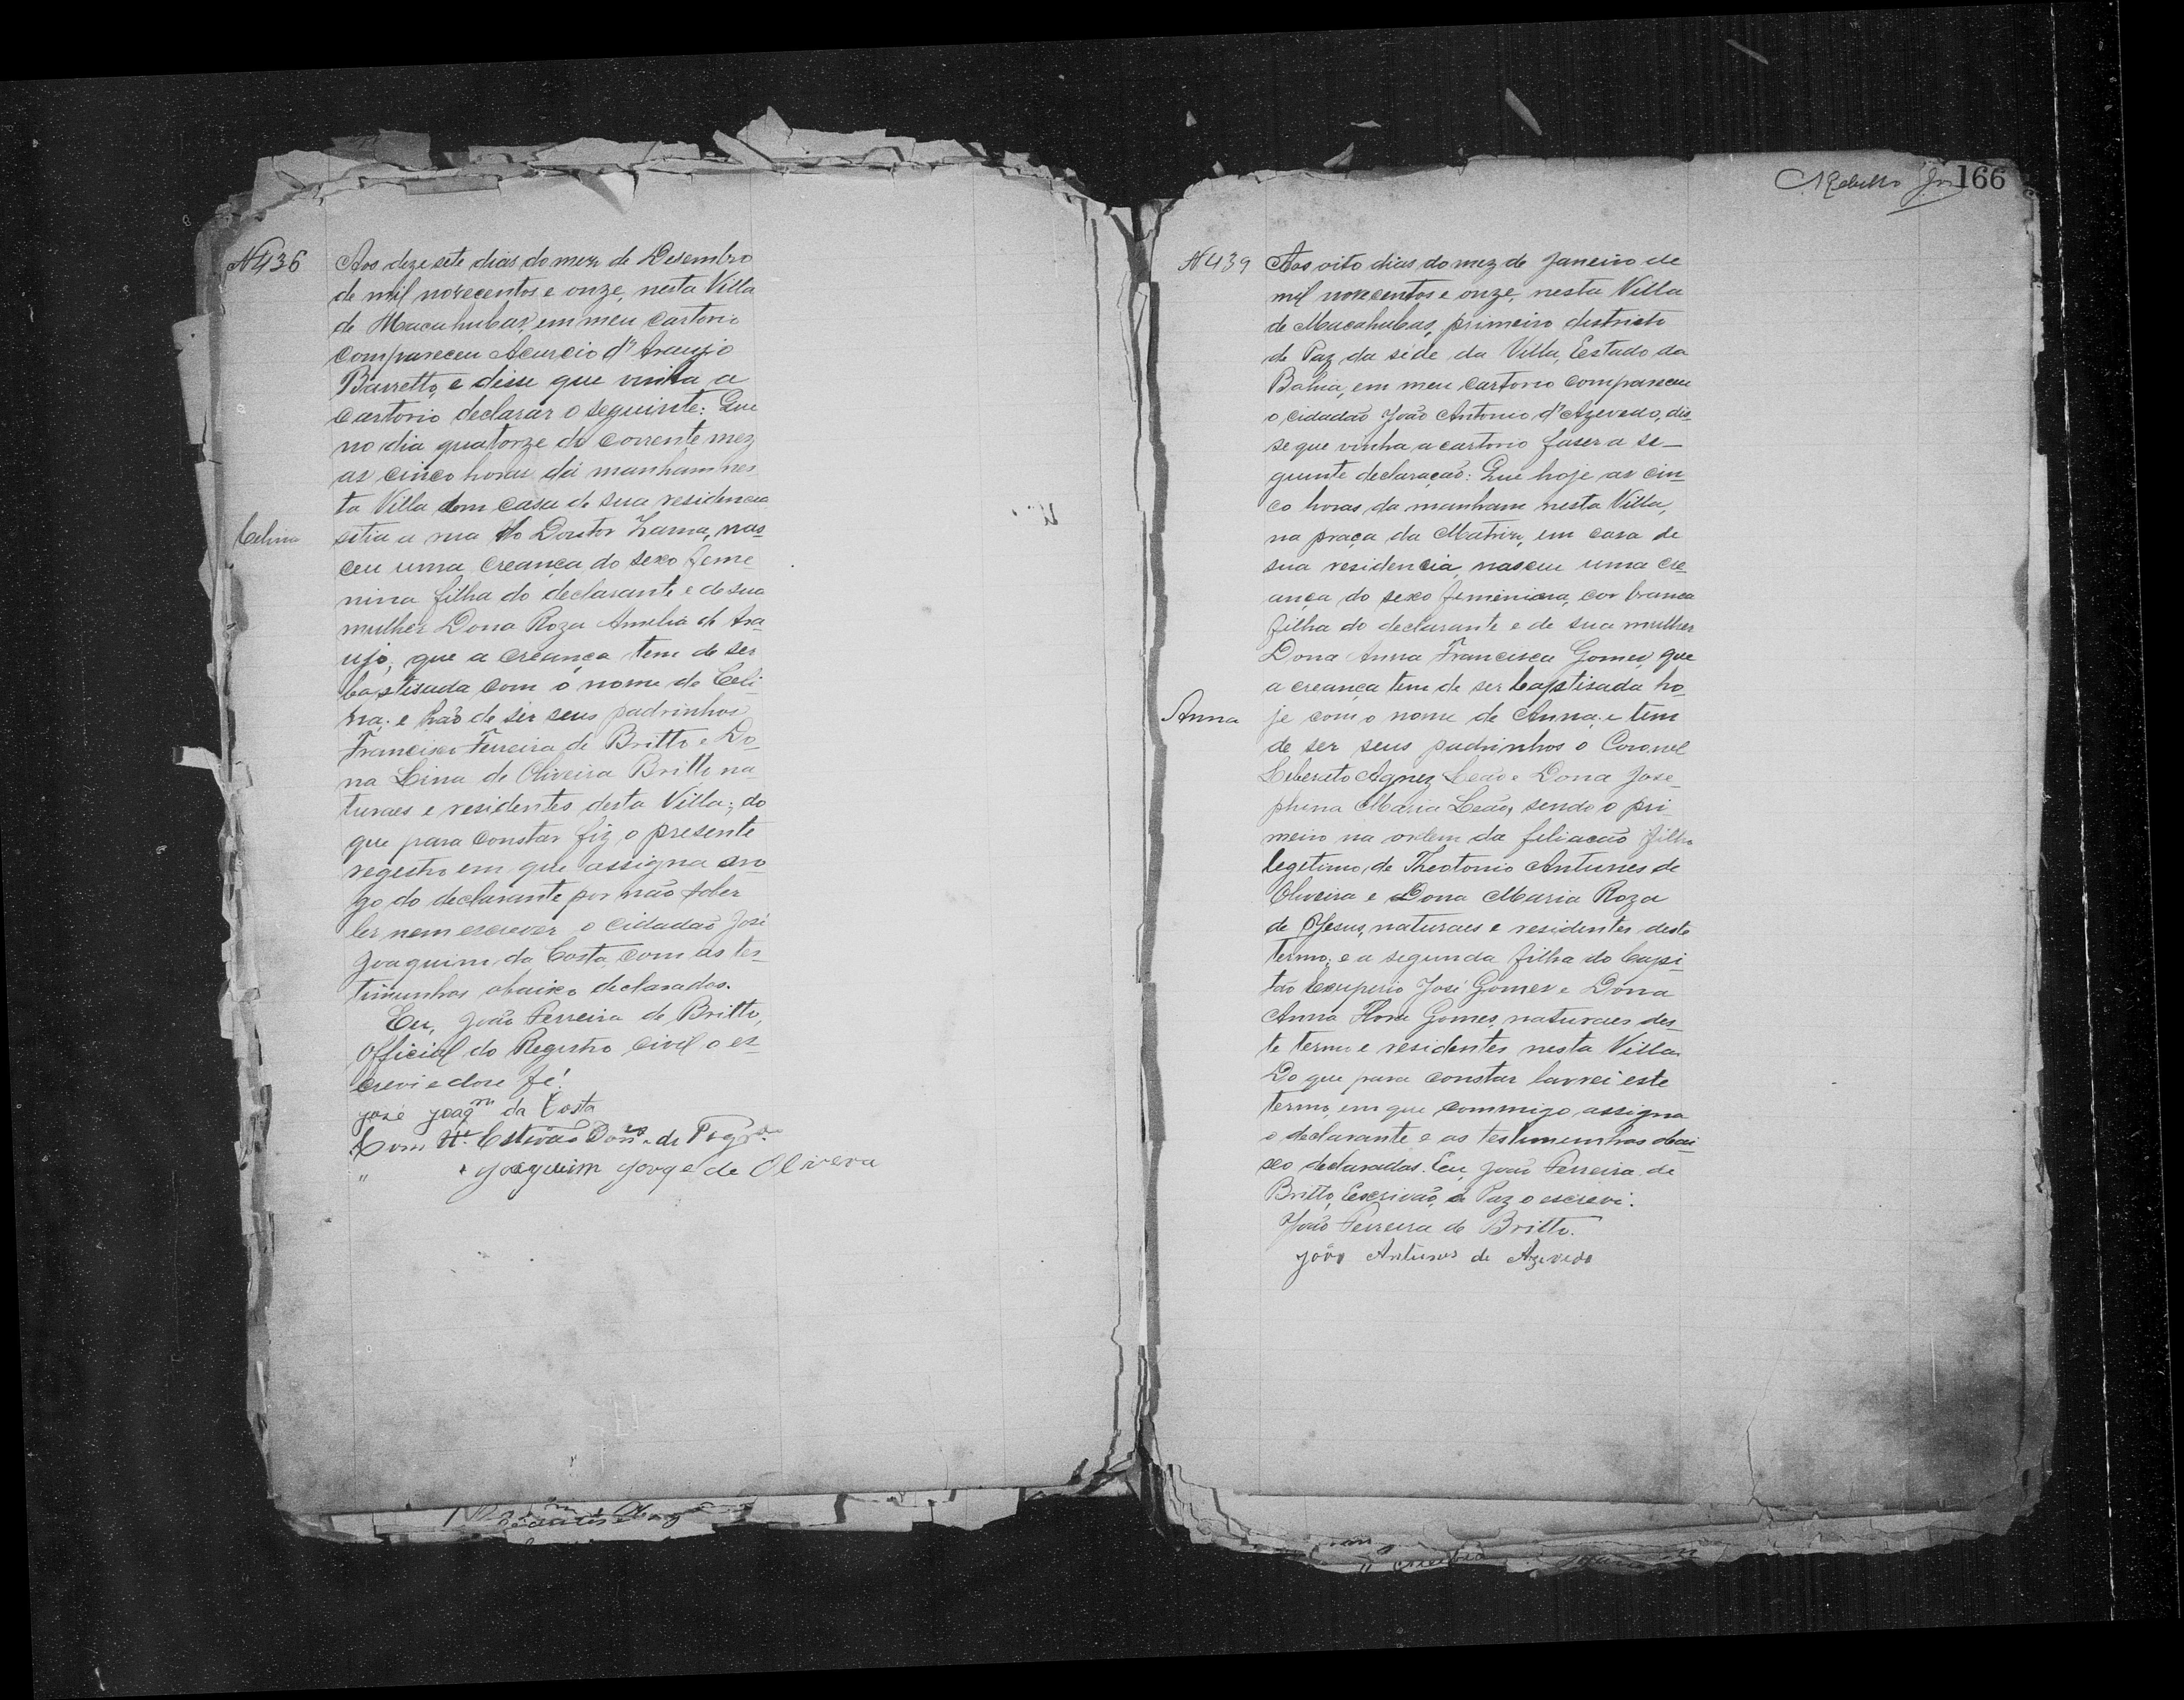 N 436
Aos deze sete dias do mez de Desembro
de mil novecentos e onze, nesta Villa
de Macahubas, em meu Cartorio
compareceu Acurcio d'Araujo
Barretto, e disse que vinha a
cartorio declarar o seguinte: Que
no dia quatorze do corrente mez
as cinco horas da manham nes
ta Villa em casa de sua residencia
Celina
sitia a rua do Doutor, nas
ceu uma creança do sexo feme
nina filha do declarante e de sua
mulher Dona Roza Amelia de Ara
ujo; que a creança tem de ser
baptisada com o nome de Celi
na; e hão de ser seus padrinhos
Francisco Ferreira de Britto e Do
na Lina de Oliveira Britto na
turaes e residentes desta Villa; do
que para constar fiz o presente
registro em que assigna aro
go do declarante por não saber
ler nem escrever o cidadão José
Joaquim da Costa com as tes
timunhas abaixo declaradas.
Eu, João Ferreira de Britto,
Official do Registro Civil o es
crevi e dou fé!
José Joaqm da Costa
Como
" Joaquim Jorge de Olivera
166
N 439
Aos oito dias do mez de Janeiro de
mil novecentos e onze, nesta Villa
de Macahubas, primeiro districto
de Paz da séde da Villa, Estado da
Bahia, em meu Cartorio compareceu
o cidadão João Antonio d'Azevedo, dis
se que vinha a cartorio faser a se-
guinte declaração: Que hoje as cin
co horas da manham nesta Villa,
na praça da Matriz, em casa de
sua residencia, nasceu uma cre
ança do sexo femenina, cor branca
filha do declarante e de sua mulher
Dona Anna Francisca Gomes, que
a creança tem de ser baptisada ho
Anna
je com o nome de Anna; e tem
de ser seus padrinhos o Coronel
Liberato Agnez Leão e Dona Jose
phina Maria Leão, sendo o pri
meiro na ordem da feliacão filho
legetimo, de Theotonio Antunes de
Oliveira e Dona Maria Roza
de Jesus, naturaes e residentes deste
termo; e a segunda filha do Capi
tão Exuperio José Gomes e Dona
Anna Flora Gomes, naturaes des
te termo e residentes nesta Villa.
Do que para constar lavrei este
termo, em que commigo assigna
o declarante e as testimunhas abai
xo declaradas. Eu, João Ferreira de
Britto, Escrivão de Paz o escrevi.
João Ferreira de Britto.
João Antunes de Azevedo